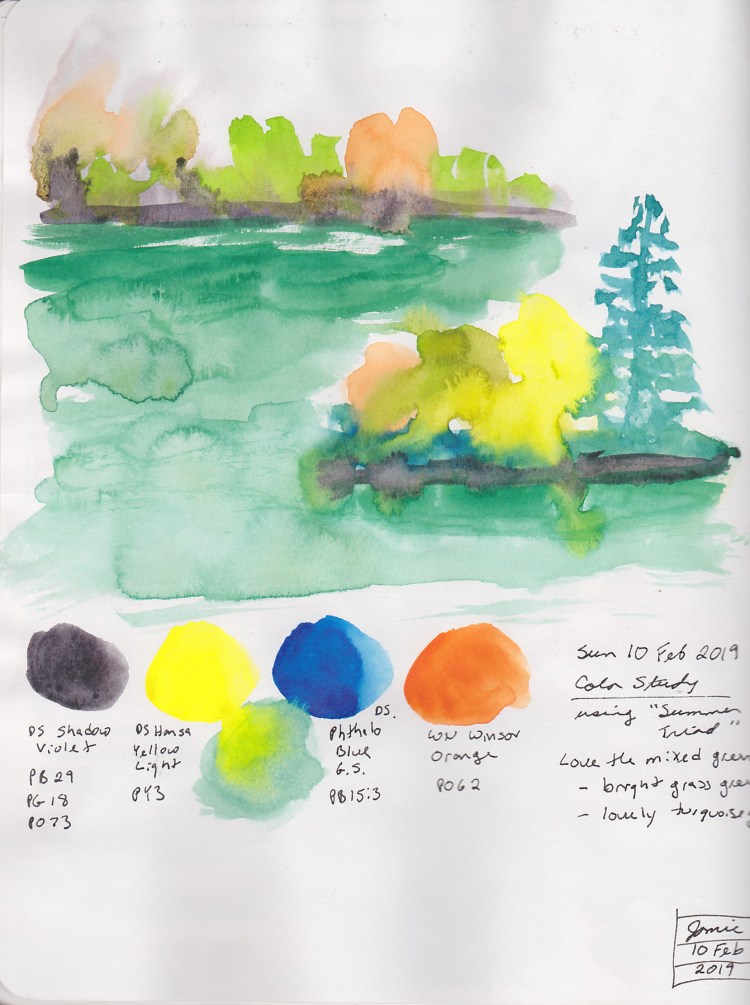 DS Shadow
Violet
PB29
PG18
PO73
DS Hansa
Yellow
Light
PY3
DS.
Phthalo
Blue
G.S.
PB15:3
WN Winsor
Orange
PO62
Sun 10 Feb 2019
Color Study
using "Summer
Triad"
Love the mixed green
- bright grass gree
- lovely turquoise
Jamie
10 Feb
2019